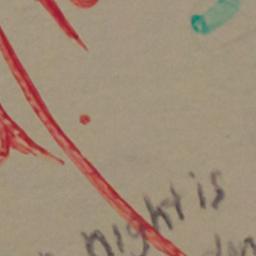 night is